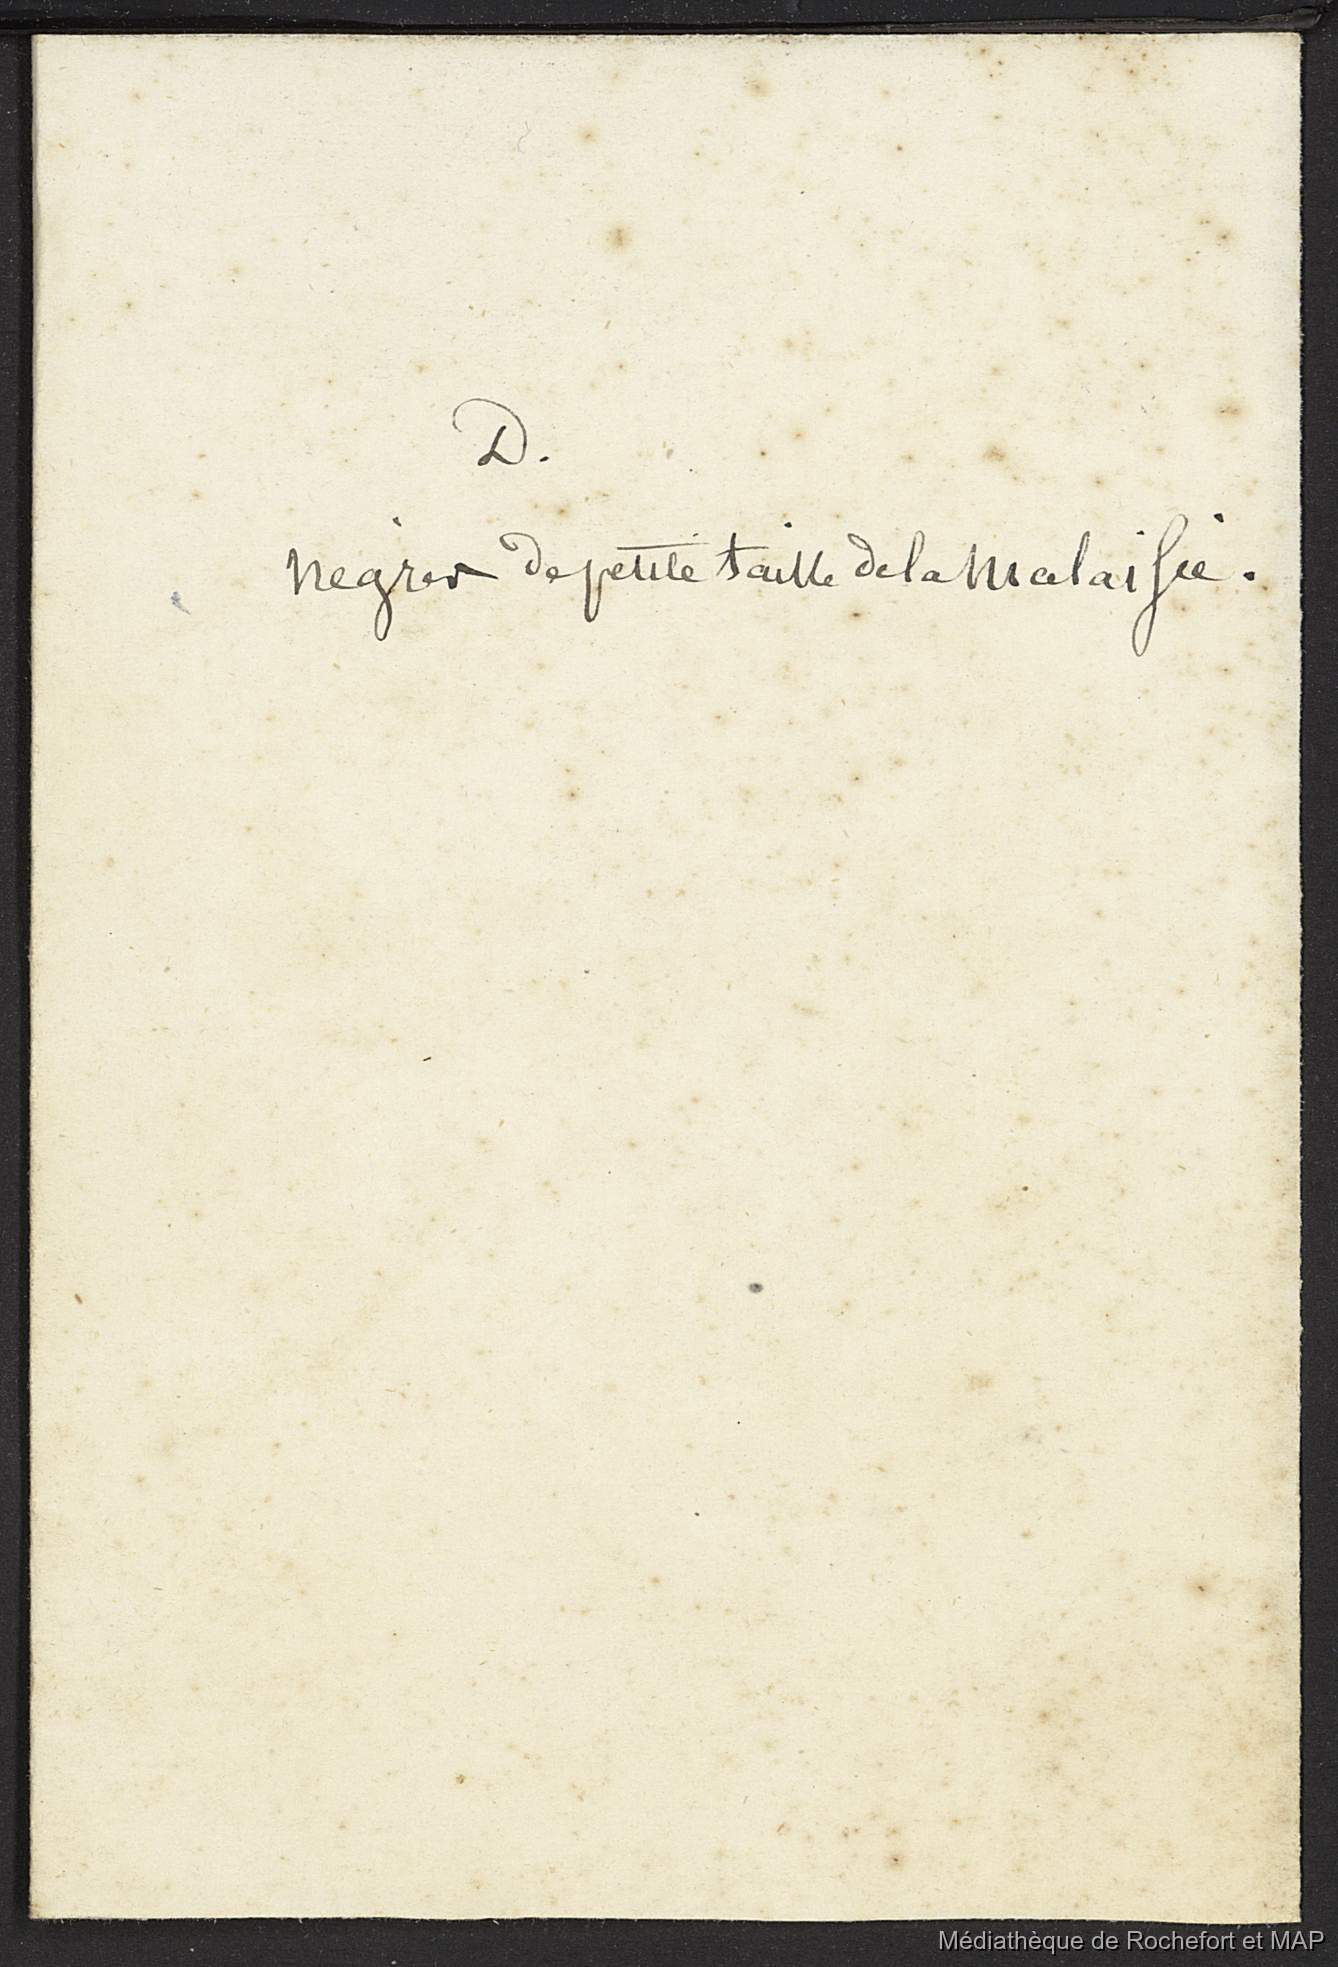 D.
negres de petite taille de la malaisie.
Médiathèque de Rochefort et MAP